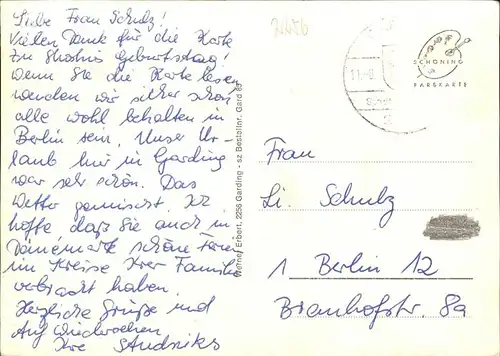 Liebe Frau Schulz!
Vielen Dank für die Karte
zu Geburtstag!
Wenn Sie die Karte lesen
werden wir sicher schon
alle wohl behalten in
Berlin sein. Unser Ur-
laub hier in Garding
war sehr schön. Das
Wetter gemischt. Ich
hoffe daß Sie auch in
Dänemark schöne Ferien
im Kreise Ihrer Familie
verbracht haben.
Herzliche Grüße und
Auf Wiedersehen
Ihre
Werner Erbert, 2256 Garding - sz Bestellnr. Gard 89
SCHÖNING
FARBKARTE
Frau
Li. Schulz
1 Berlin 12
8a